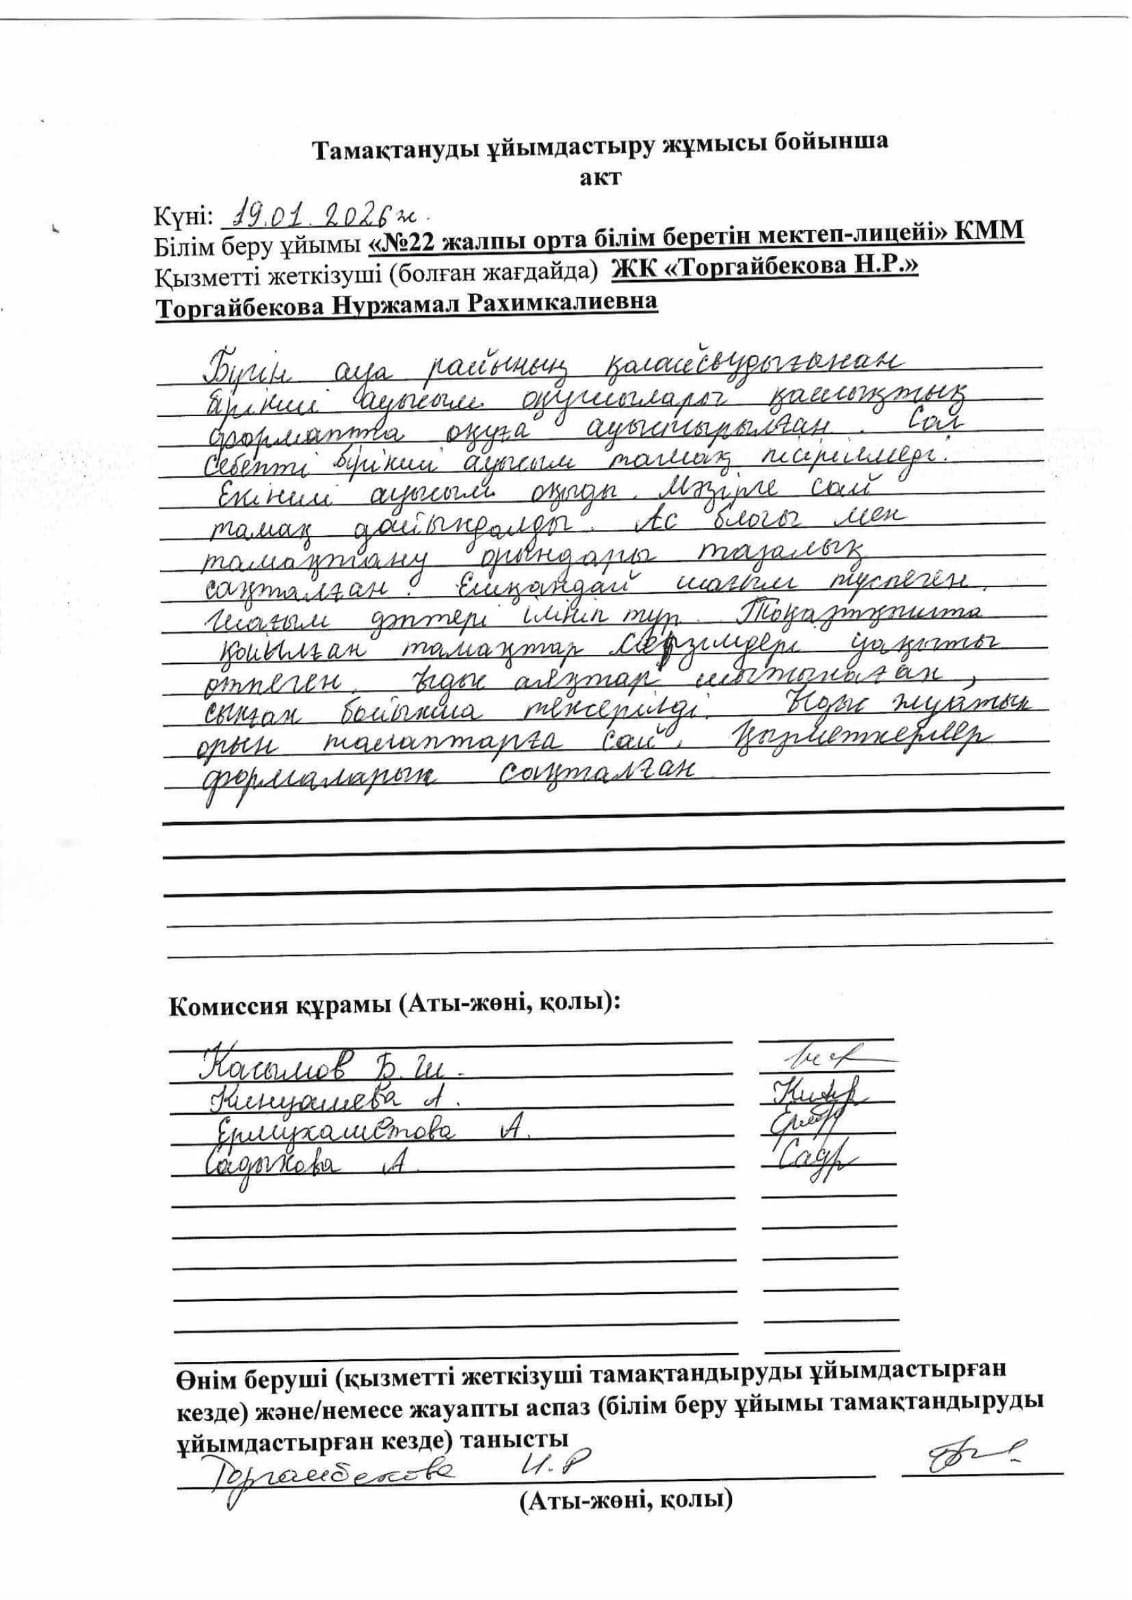 Тамақтануды ұйымдастыру жұмысы бойынша
акт
Күні: 19.01.2026ж.
Білім беру ұйымы «№22 жалпы орта білім беретін мектеп-лицейі» КММ
Қызметті жеткізуші (болған жағдайда) ЖК «Торгайбекова Н.Р.»
Торгайбекова Нуржамал Рахимкалиевна
Бүгін ауа райының қолайсыздығынан
бірінші ауысым оқушылары қашықтық
форматта оқуға ауыстырылған. Сол
себепті бірінші ауысым тамақ пісірілмеді.
Екінші ауысым оқыды. Мәзірге сай
тамақ дайындалды. Ас блогы мен
тамақтану орындары тазалық
сақталған. Ешқандай шағым түспеген.
Шағым дәптері ілініп тұр. Тоңазытқышта
қойылған тамақтар мерзімдері уақыты
өтпеген. Ыдыс аяқтар шытынаған,
сынған бойынша тексерілді. Ыдыс жуатын
орын талаптарға сай. Қызметкерлер
формаларын сақталған
Комиссия құрамы (Аты-жөні, қолы):
Касымов Б.Ш.
Кинуашева А.
Ермухаметова А. Ермұ
Садыкова А. Садр
Өнім беруші (қызметті жеткізуші тамақтандыруды ұйымдастырған
кезде) және/немесе жауапты аспаз (білім беру ұйымы тамақтандыруды
ұйымдастырған кезде) танысты
Торгайбекова Н.Р
(Аты-жөні, қолы)